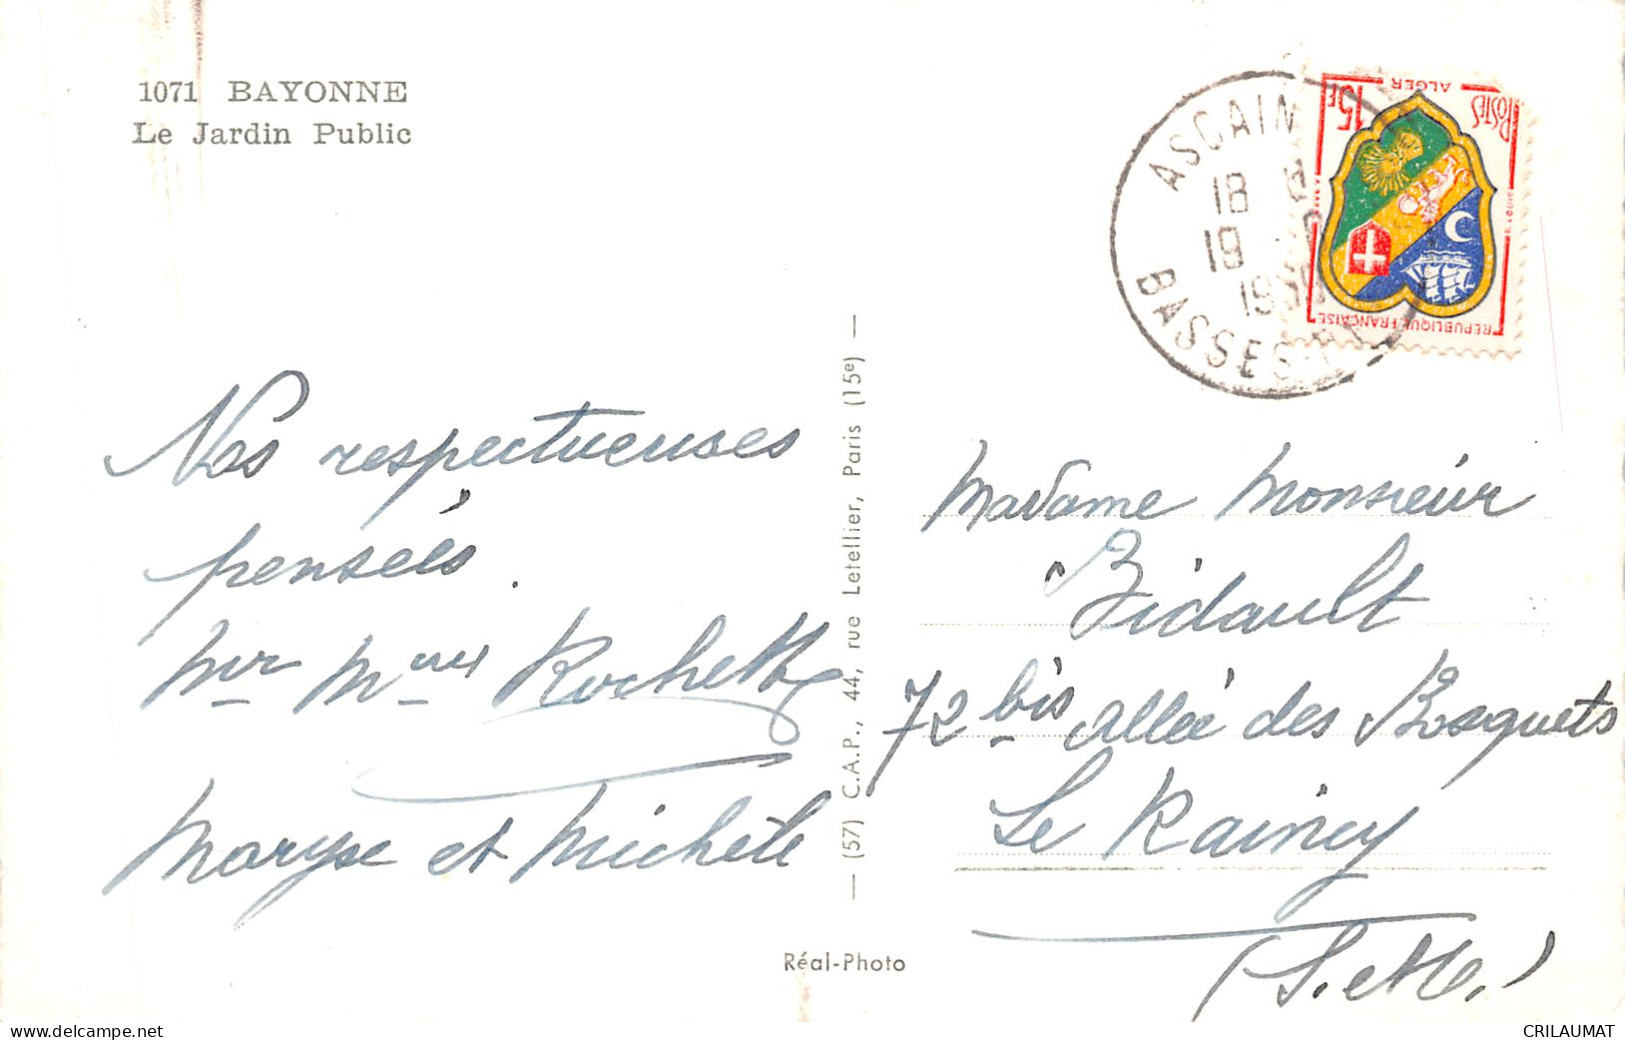 1071 BAYONNE
Le Jardin Public
Nos respectueuses
pensées.
Mr Mme Rochette
Maryse et Michèle
— (57) C.A.P., 44, rue Letellier, Paris (15e) —
Réal-Photo
ASCAIN
18
19
19
BASSES
POSTES
15F
ALGER
REPUBLIQUE FRANÇAISE
Madame Monsieur
Bidault
72 bis allée des Bosquets
Le Raincy
(S. et O.)
CRILAUMAT